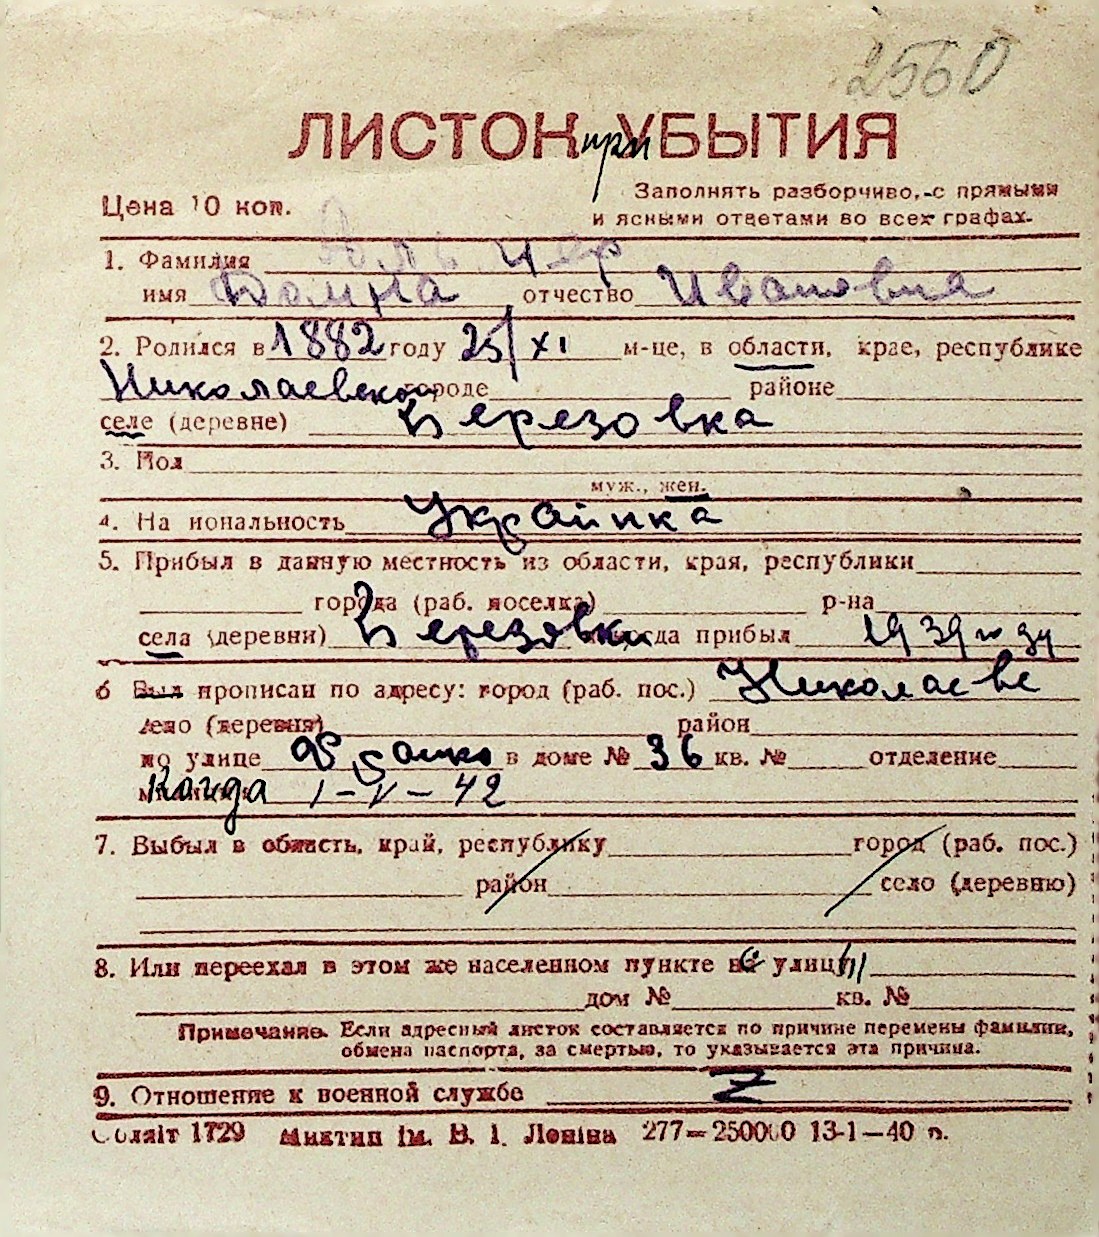 2560
ЛИСТОК при УБЫТИЯ
Цена 10 коп.
Заполнять разборчиво, с прямыми
и ясными ответами во всех графах.
1. Фамилия
имя Домна отчество Ивановна
2. Родился в 1882 году 25/XI м-це, в области, крае, республике
Николаевской городе районе
селе (деревне) Березовка
3. Пол
муж., жен.
4. На иональность Украинка
5. Прибыл в данную местность из области, края, республики
города (раб. поселка) р-на
села (деревни) Березовки когда прибыл 1939 году
6 Был прописан по адресу: город (раб. пос.) Николаеве
село (деревня) район
по улице в доме № 36 кв. № отделение
Когда 1-V-42
7. Выбыл в область, край, республику город (раб. пос.)
район село (деревню)
8. Или переехал в этом же населенном пункте с улицы
дом № кв. №
Примечание. Если адресный листок составляется по причине перемены фамилии,
обмена паспорта, за смертью, то указывается эта причина.
9. Отношение к военной службе Z
Обліт 1729 Миктип ім. В. І. Леніна 277—250000 13-1—40 п.